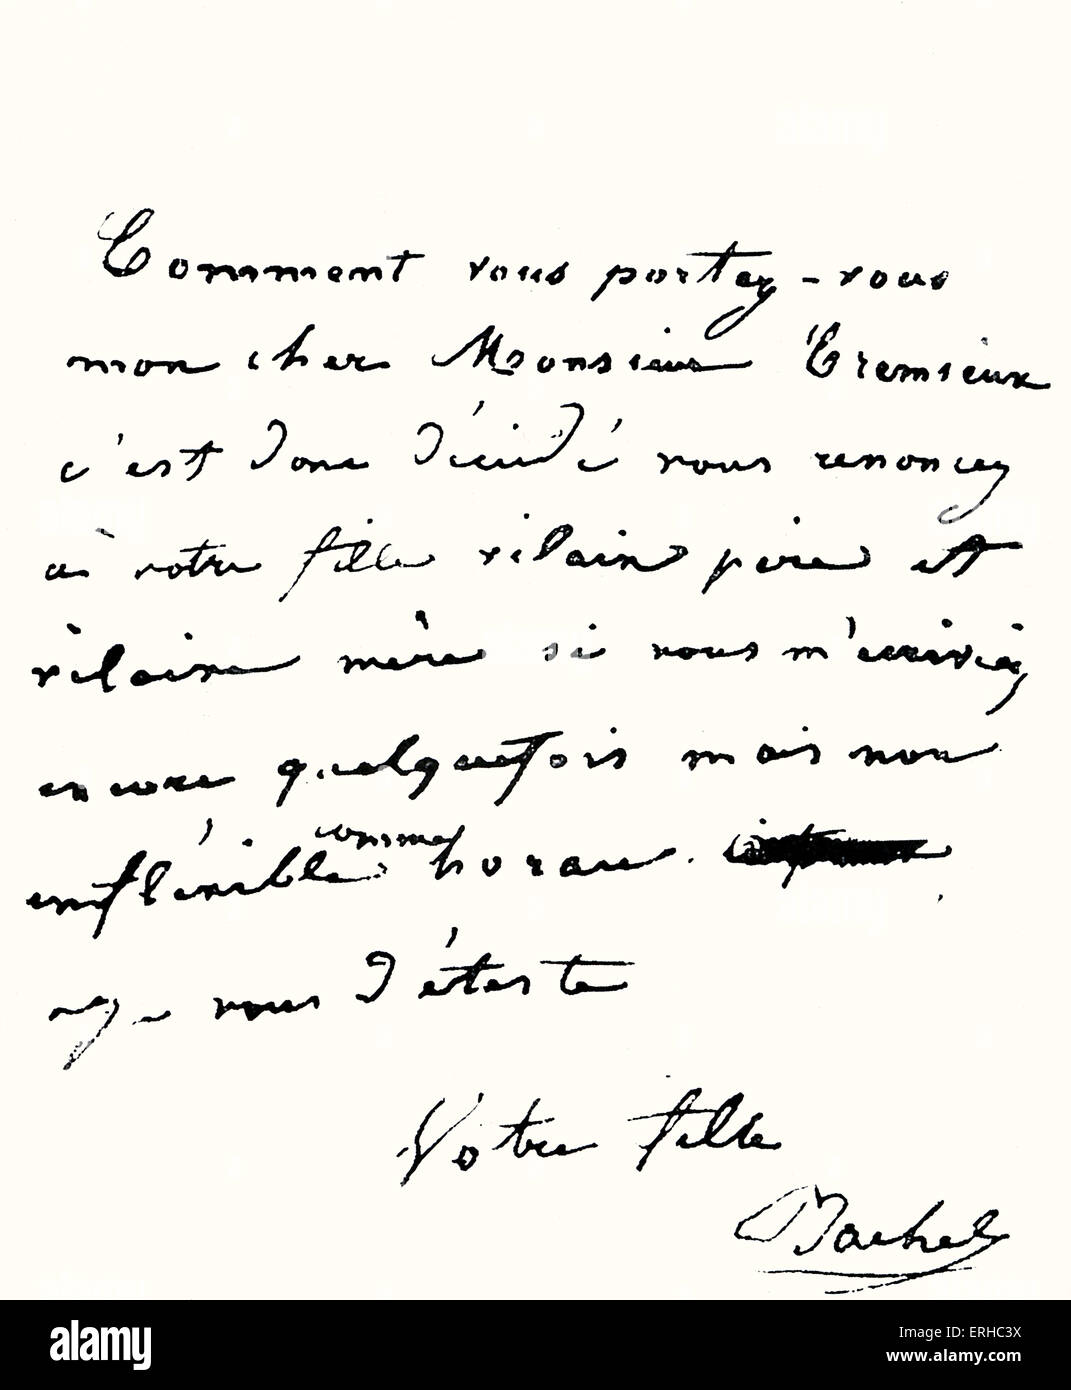 Comment vous portez-vous
mon cher Monsieur Cremieux
c'est donc décidé vous renoncez
à votre fille vilain père et
vilaine mère si vous m'écriviez
encore quelquefois mais non
infléxible comme horace.
je vous déteste
Votre fille
Rachel
alamy
Image ID: ERHC3X
www.alamy.com